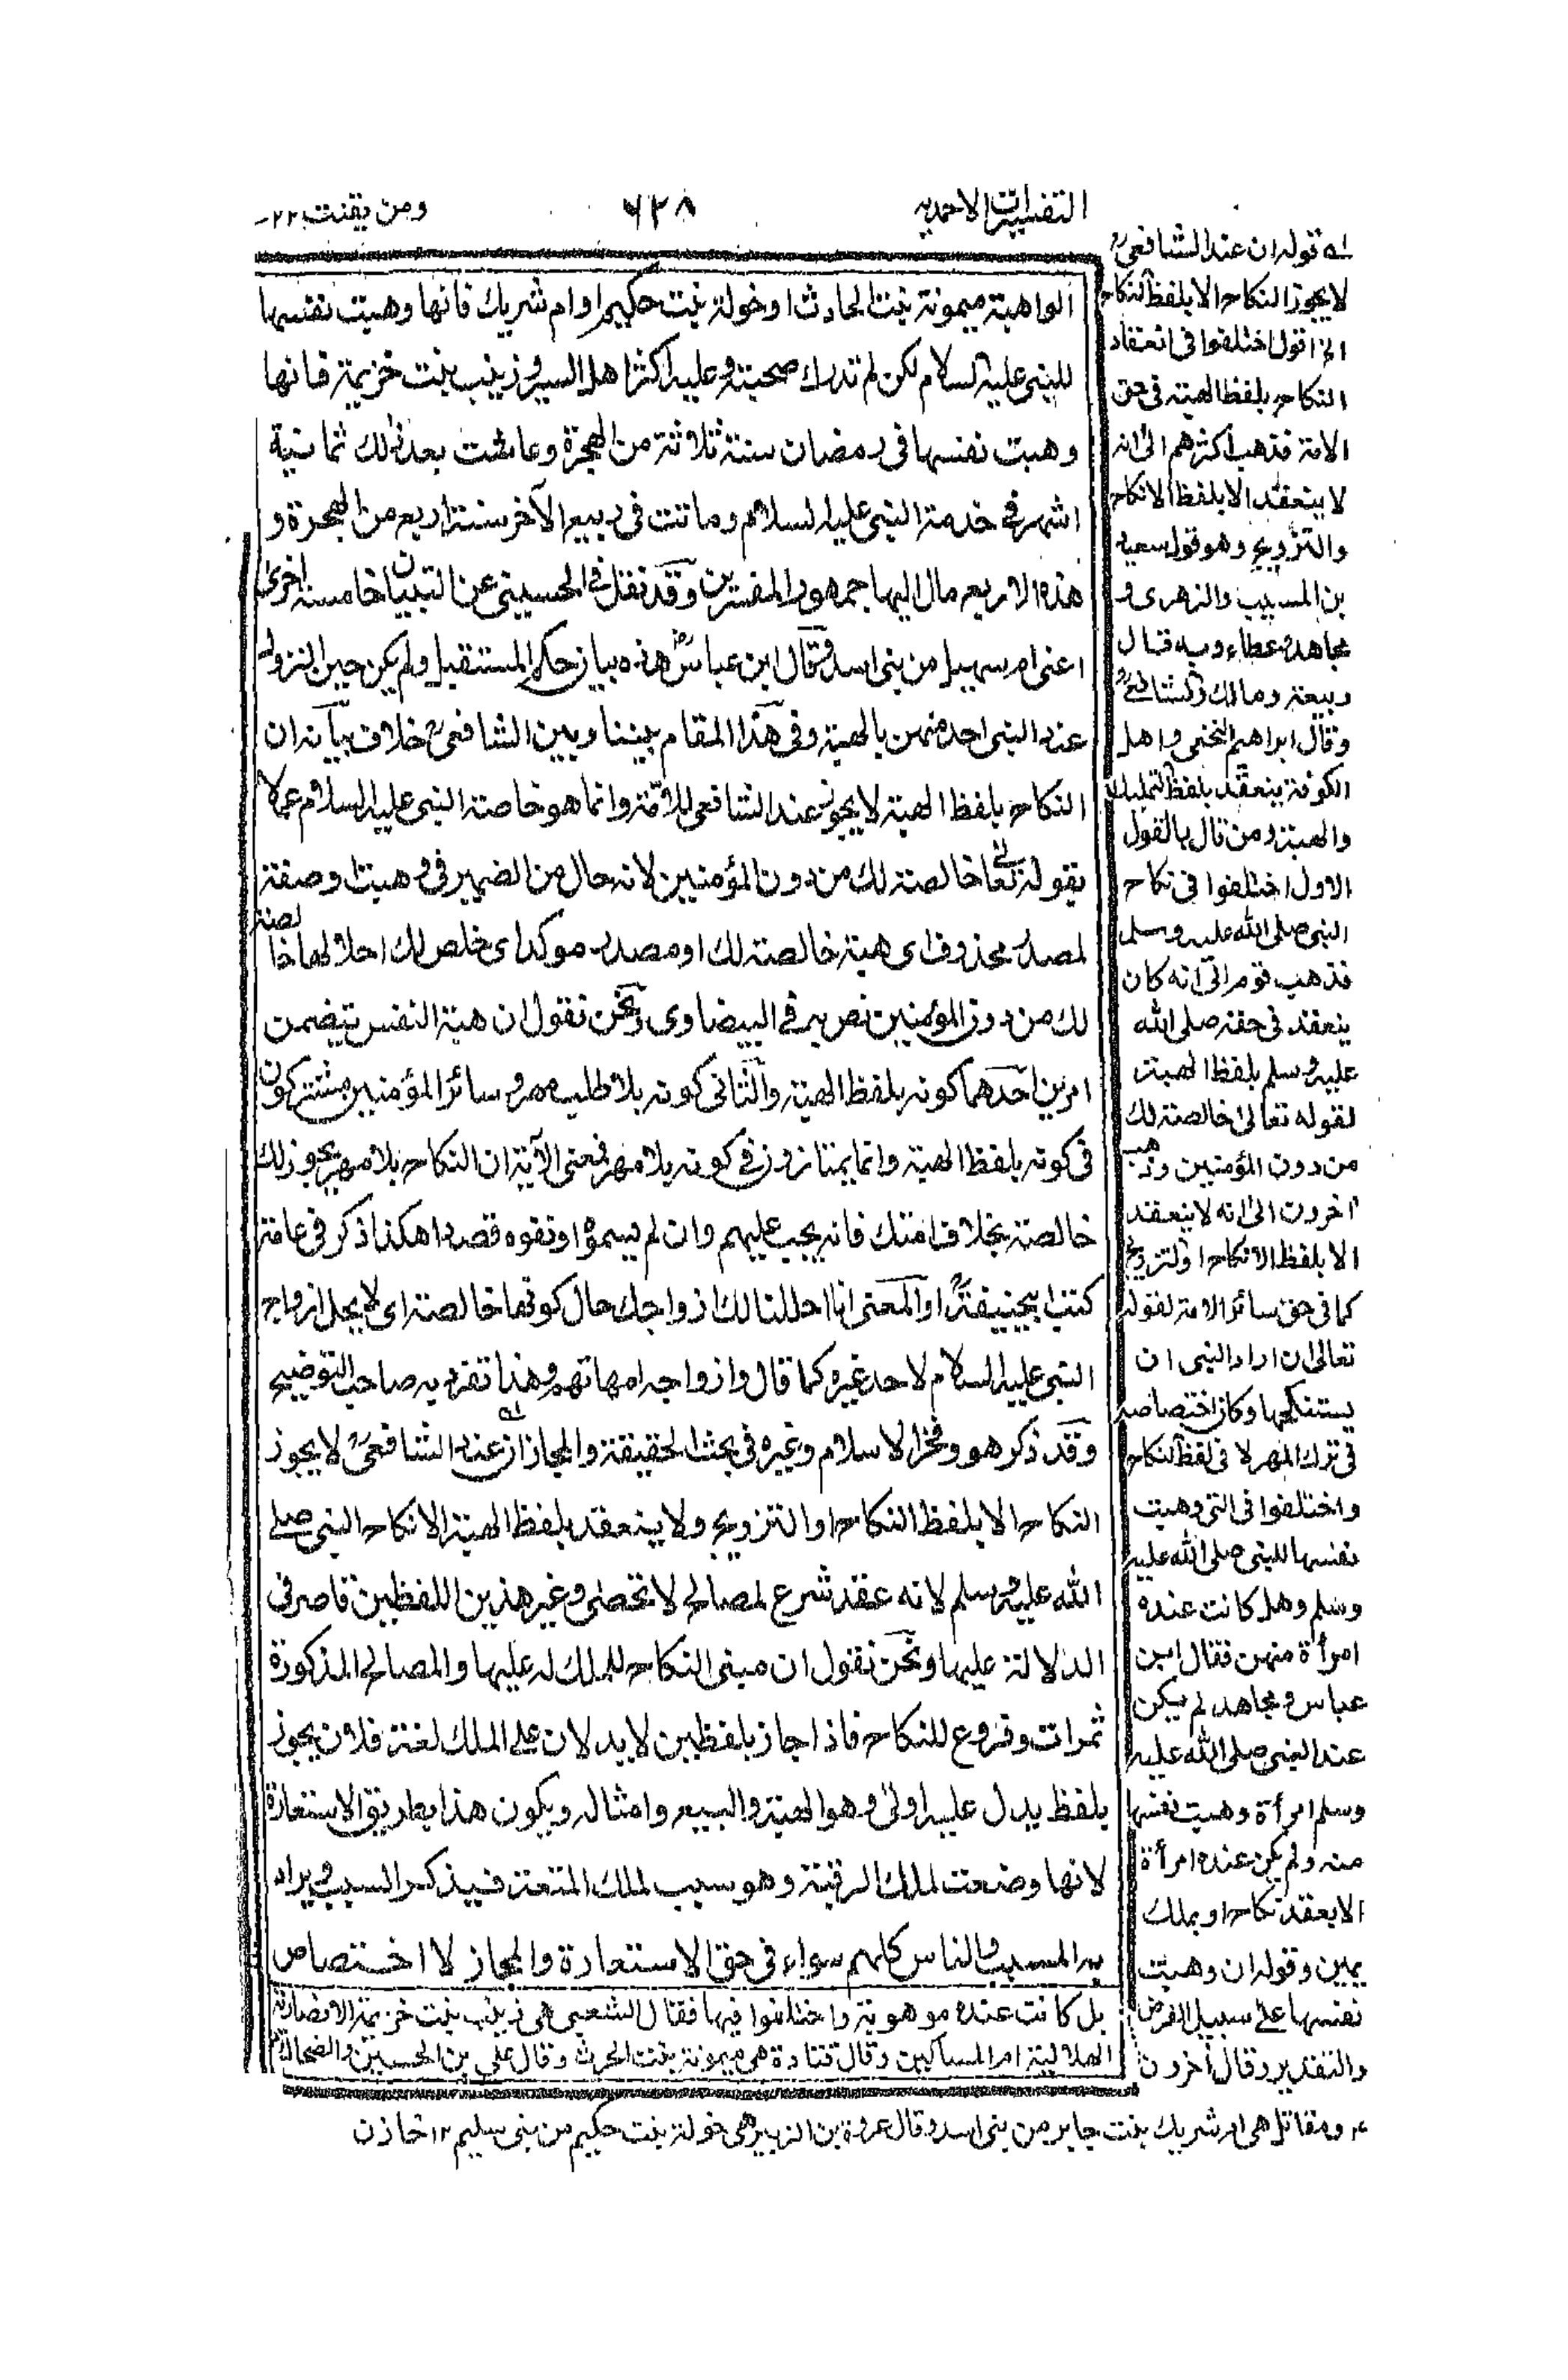 التفسيرات الاحمديه
٦٢٨
ومن يقنت ٢٢
الواهبة ميمونة بنت الحادث او خولة بنت حكيم او ام شريك فانها وهبت نفسها
للنبى عليه السلام لكن لم تدرك صحبته وعليه اكثر اهل السير وزينب بنت خزيمة فانها
وهبت نفسها فى رمضان سنة ثلاثة من الهجرة وعاشت بعد ذلك ثمانية
اشهر فى خدمة النبى عليه السلام وماتت فى ربيع الآخر سنة اربع من الهجرة و
هذه الاربع مال اليها جمهور المفسرين وقد نقل فى الحسينى عن التبيان خامسة اخرى
اعنى ام سهيل من بنى اسد وقال ابن عباس هذه بيان حكم المستقبل ولم يكن حين النزول
عند النبى احد منهن بالهبة وفى هذا المقام بيننا وبين الشافعى خلاف بيانه ان
النكاح بلفظ الهبة لا يجوز عند الشافعى للامة وانما هو خاصة النبى عليه السلام عملا
بقوله تعالى خالصة لك من دون المؤمنين لانه حال من الضمير فى وهبت او صفة
لمصدر محذوف اى هبة خالصة لك او مصدر موكد اى خلص لك احلالها خالصة
لك من دون المؤمنين نص به فى البيضاوى ونحن نقول ان هبة النفس تتضمن
امرين احدهما كونه بلفظ الهبة والثانى كونه بلا طلب مهر وسائر المؤمنين مشتركون
فى كونه بلفظ الهبة وانما يمتازون فى كونه بلا مهر فمعنى الآية ان النكاح بلا مهر يجوز لك
خالصة بخلاف امتك فانه يجب عليهم وان لم يسموا او نفوه قصدا هكذا ذكر فى عامة
كتب ابيحنيفة او المعنى انا احللنا لك ازواجك حال كونها خالصة اى لا يحل ازواج
النبى عليه السلام لاحد غيره كما قال وازواجه امهاتهم وهذا تفرد به صاحب التوضيح
وقد ذكر هو وفخر الاسلام وغيره فى بحث الحقيقة والمجاز ان عند الشافعى لا يجوز
النكاح الا بلفظ النكاح او التزويج ولا ينعقد بلفظ الهبة الا نكاح النبى صلى
الله عليه وسلم لانه عقد شرع لمصالح لا تحصى وغير هذين اللفظين قاصر فى
الدلالة عليها ونحن نقول ان مبنى النكاح للملك له عليها والمصالح المذكورة
ثمرات وفروع للنكاح فاذا جاز بلفظين لا يدلان على الملك لغة فلان يجوز
بلفظ يدل عليه اولى وهو الهبة والبيع وامثاله ويكون هذا بطريق الاستعارة
لانها وضعت لملك الرقبة وهو سبب لملك المتعة فيذكر السبب ويراد
به المسبب والناس كلهم سواء فى حق الاستعارة والمجاز لا اختصاص
له قوله ان عند الشافعى
لا يجوز النكاح الا بلفظ النكاح
الخ اقول اختلفوا فى انعقاد
النكاح بلفظ الهبة فى حق
الامة فذهب اكثرهم الى انه
لا ينعقد الا بلفظ الانكاح
والتزويج وهو قول سعيد
بن المسيب والزهرى و
مجاهد وعطاء وبه قال
ربيعة ومالك والشافعى
وقال ابراهيم النخعى واهل
الكوفة ينعقد بلفظ التمليك
والهبة ومن قال بالقول
الاول اختلفوا فى نكاح
النبى صلى الله عليه وسلم
فذهب قوم الى انه كان
ينعقد فى حقه صلى الله
عليه وسلم بلفظ الهبة
لقوله تعالى خالصة لك
من دون المؤمنين وذهب
آخرون الى انه لا ينعقد
الا بلفظ الانكاح او التزويج
كما فى حق سائر الامة لقوله
تعالى ان اراد النبى ان
يستنكحها وكان اختصاصه
فى ترك المهر لا فى لفظ النكاح
واختلفوا فى التى وهبت
نفسها للنبى صلى الله عليه
وسلم وهل كانت عنده
امرأة منهن فقال ابن
عباس ومجاهد لم يكن
عند النبى صلى الله عليه
وسلم امرأة وهبت نفسها
منه ولم يكن عنده امرأة
الا بعقد نكاح او بملك
يمين وقوله ان وهبت
نفسها على سبيل الفرض
والتقدير وقال آخرون
بل كانت عنده موهوبة واختلفوا فيها فقال الشعبى هى زينب بنت خزيمة الانصارية
الهلالية ام المساكين وقال قتادة هى ميمونة بنت الحرث وقال على بن الحسين والضحاك
ومقاتل هى ام شريك بنت جابر من بنى اسد وقال عروة بن الزبير هى خولة بنت حكيم من بنى سليم ١٢ خازن